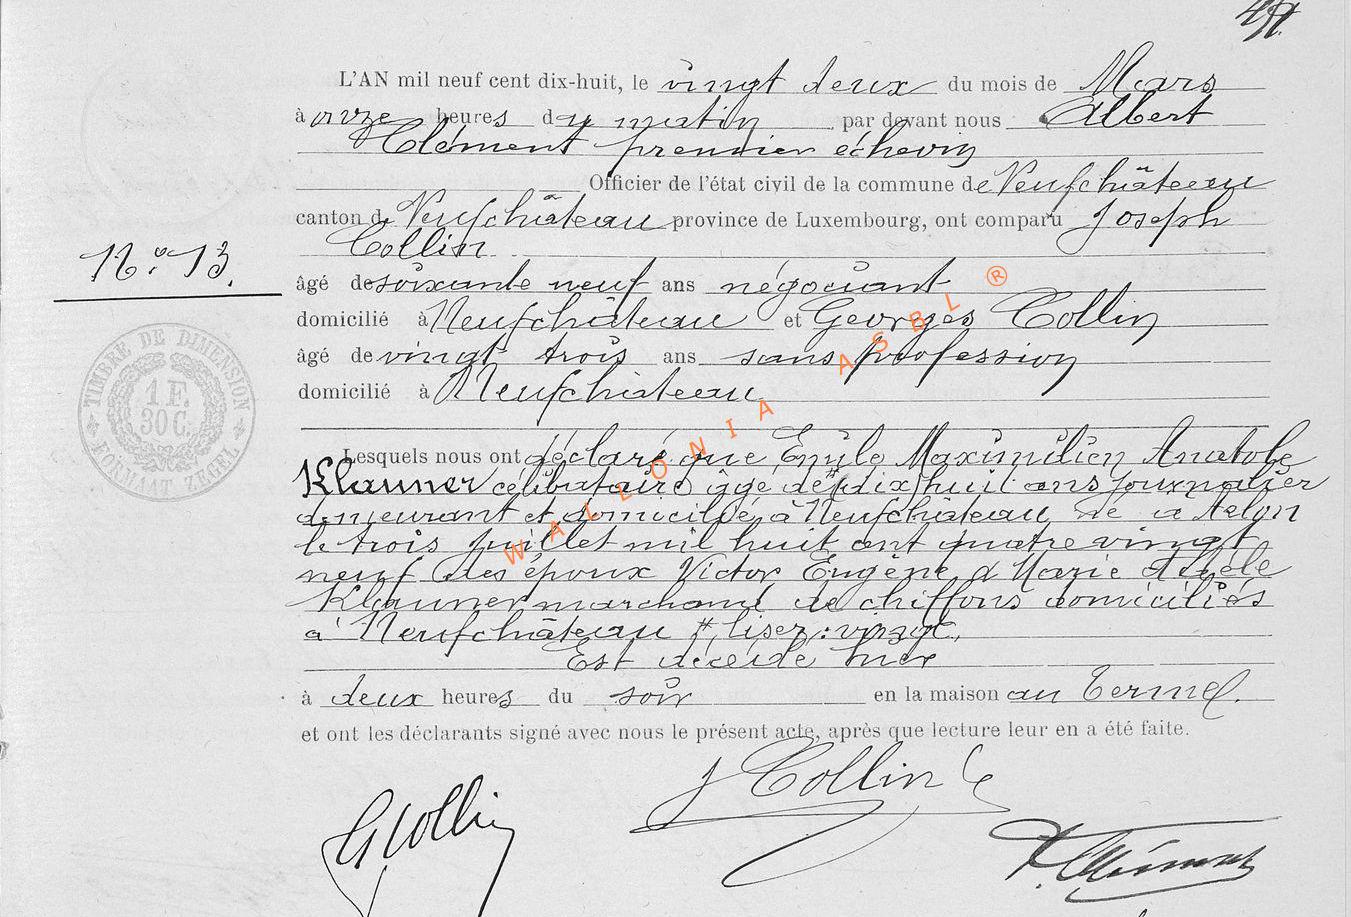 L'AN mil neuf cent dix-huit, le vingt deux du mois de Mars
à onze heures du matin par devant nous Albert
Clément premier échevin
Officier de l'état civil de la commune de Neufchâteau
canton de Neufchâteau province de Luxembourg, ont comparu Joseph
Collin
N° 13.
âgé de soixante neuf ans négociant
domicilié à Neufchâteau et Georges Collin
âgé de vingt trois ans sans profession
domicilié à Neufchâteau
TIMBRE DE DIMENSION
1 F.
30 C.
FORMAAT ZEGEL
Lesquels nous ont déclaré que Emile Maximilien Anatole
Klauner célibataire âgé de # dix huit ans journalier
demeurant et domicilié à Neufchâteau né à
le trois juillet mil huit cent quatre vingt
neuf des époux Victor Eugène & Marie Adèle
Klauner marchand de chiffons domiciliés
à Neufchâteau # lisez : vingt.
Est décédé hier
à deux heures du soir en la maison au Terme
et ont les déclarants signé avec nous le présent acte, après que lecture leur en a été faite.
J Collin
G Collin
A. Clément
WALLONIA ASBL ®